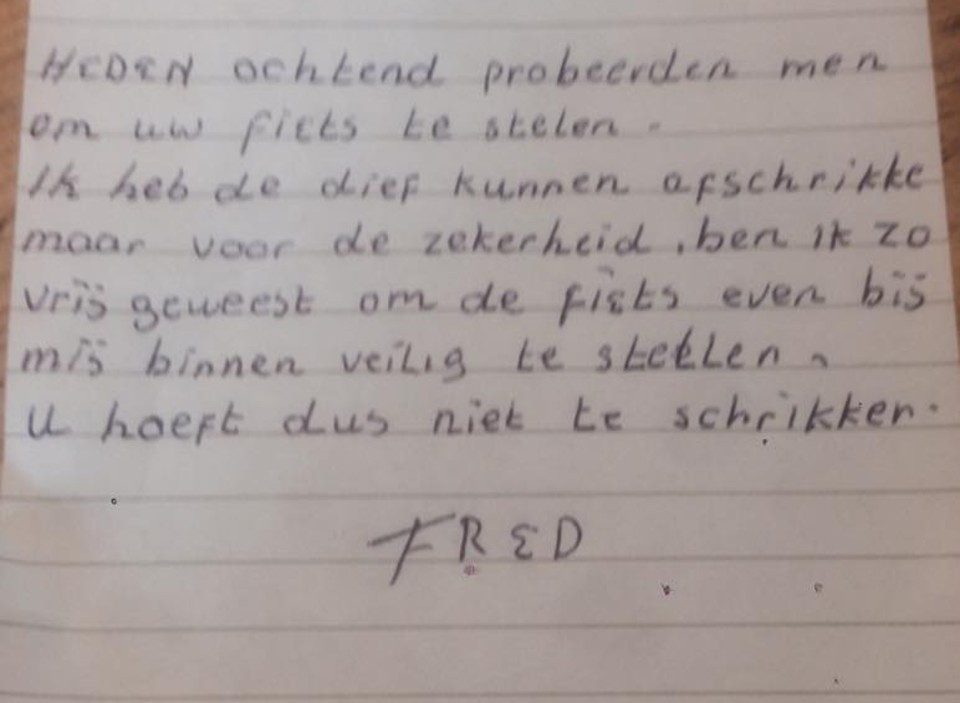 HEDEN ochtend probeerden men
om uw fiets te stelen.
Ik heb de dief kunnen afschrikke
maar voor de zekerheid, ben ik zo
vrij geweest om de fiets even bij
mij binnen veilig te stellen.
U hoeft dus niet te schrikken.
FRED